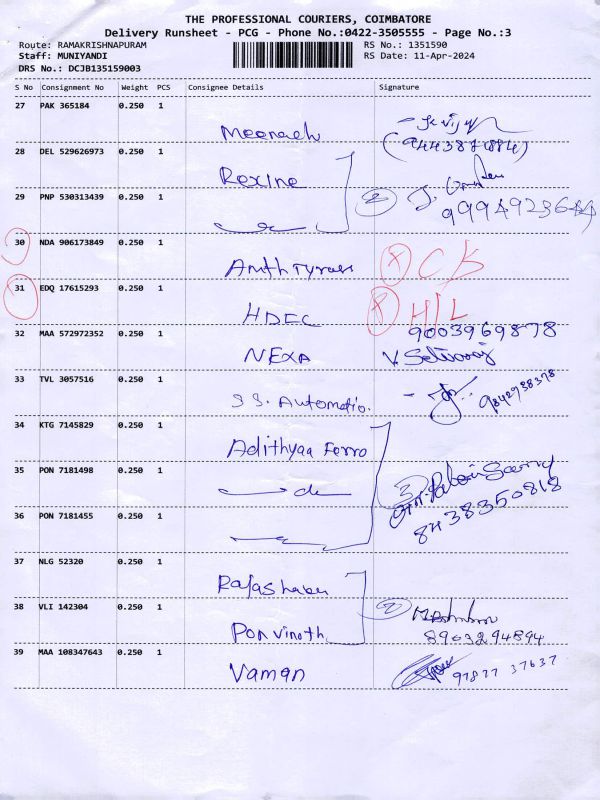 THE PROFESSIONAL COURIERS, COIMBATORE
Delivery Runsheet - PCG - Phone No.:0422-3505555 - Page No.:3
Route: RAMAKRISHNAPURAM RS No.: 1351590
Staff: MUNIYANDI RS Date: 11-Apr-2024
DRS No.: DCJB135159003
S No Consignment No Weight PCS Consignee Details Signature
27 PAK 365184 0.250 1
Meenach
28 DEL 529626973 0.250 1
Rexine
29 PNP 530313439 0.250 1
2
30 NDA 906173849 0.250 1
31 EDQ 17615293 0.250 1
HDFC H/L
9003969878
32 MAA 572972352 0.250 1
NEXA V. Selvaraj
33 TVL 3057516 0.250 1
S.S. Automatio. 9842938378
34 KTG 7145829 0.250 1
Adithyaa Ferro
35 PON 7181498 0.250 1
do 3
8438350818
36 PON 7181455 0.250 1
37 NLG 52320 0.250 1
38 VLI 142304 0.250 1
2
Ponvinoth 8903294894
39 MAA 108347643 0.250 1
Vaman 97877 37637